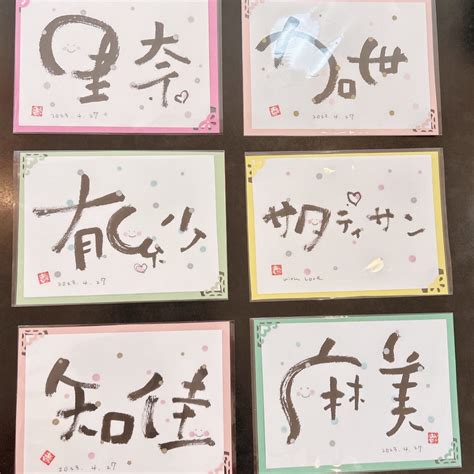 里奈
2023.4.27
2023.4.27
有紗
2023.4.27
サタティサン
love
知佳
2023.4.27
麻美
2023.4.27